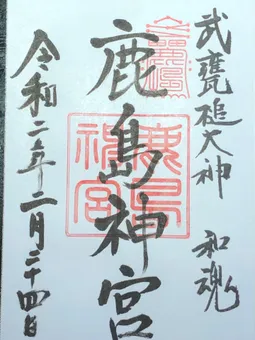 武甕槌大神 和魂
鹿島神宮
鹿島
神宮
令和二年二月二十四日